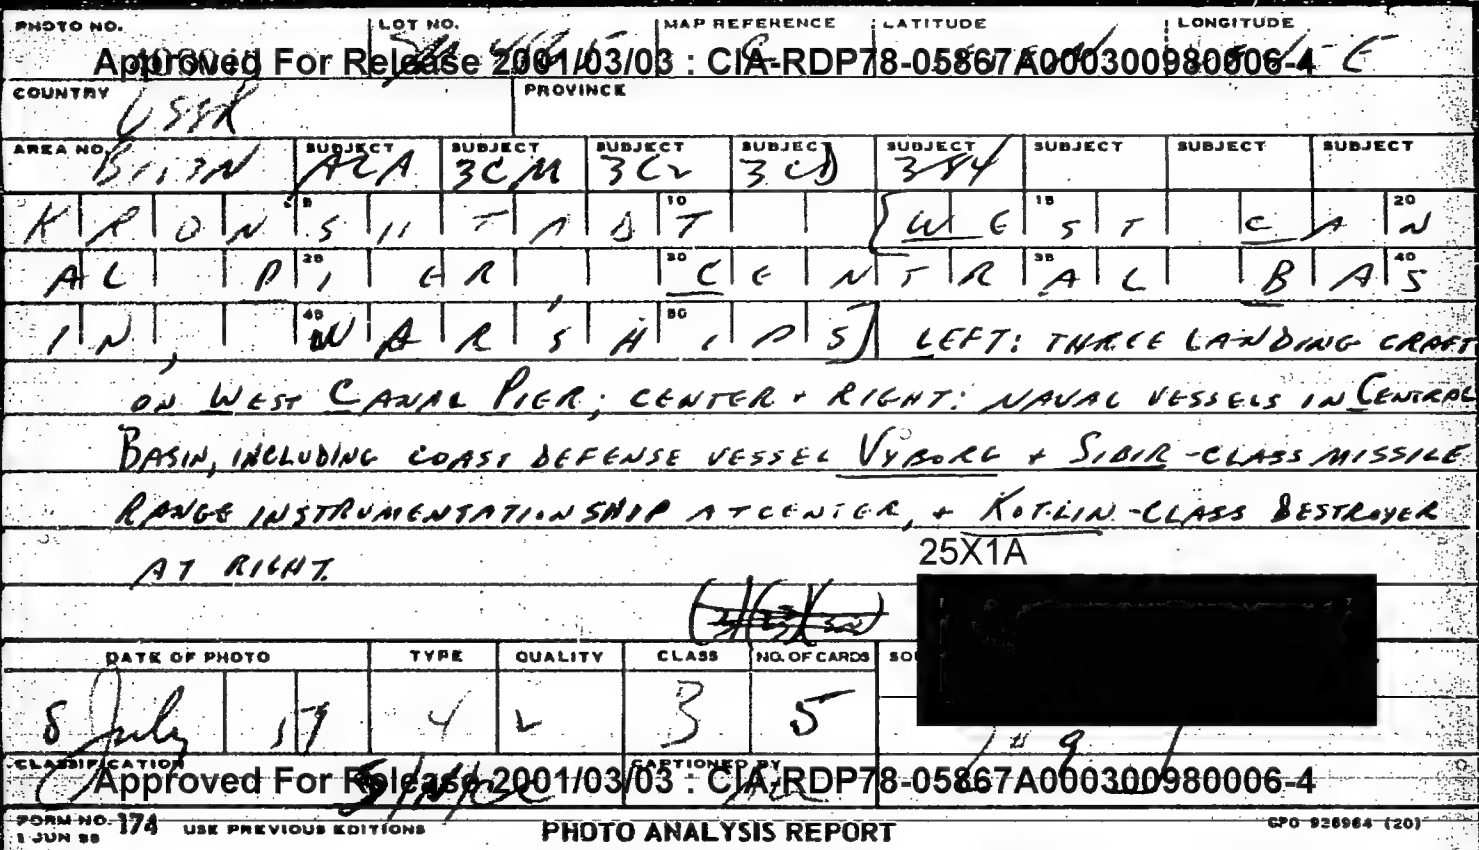 PHOTO NO. LOT NO. MAP REFERENCE LATITUDE LONGITUDE
Approved For Release 2001/03/03 : CIA-RDP78-05867A000300980006-4 E
COUNTRY USSR PROVINCE
AREA NO. SUBJECT SUBJECT SUBJECT SUBJECT SUBJECT SUBJECT SUBJECT SUBJECT
A2A 3CM 3C2 3CD 384
KRONSHTADT (WEST CAN
AL PIER, CENTRAL BAS
IN, WARSHIPS) LEFT: THREE LANDING CRAFT
ON WEST CANAL PIER; CENTER + RIGHT: NAVAL VESSELS IN CENTRAL
BASIN, INCLUDING COAST DEFENSE VESSEL VYBORG + SIBIR-CLASS MISSILE
RANGE INSTRUMENTATION SHIP AT CENTER, + KOTLIN-CLASS DESTROYER
AT RIGHT.
25X1A
DATE OF PHOTO TYPE QUALITY CLASS NO. OF CARDS
8 July 3 5
# 9
CLASSIFICATION CAPTIONED BY
Approved For Release 2001/03/03 : CIA-RDP78-05867A000300980006-4
FORM NO. 174
1 JUN 58 USE PREVIOUS EDITIONS PHOTO ANALYSIS REPORT GPO 926964 (20)